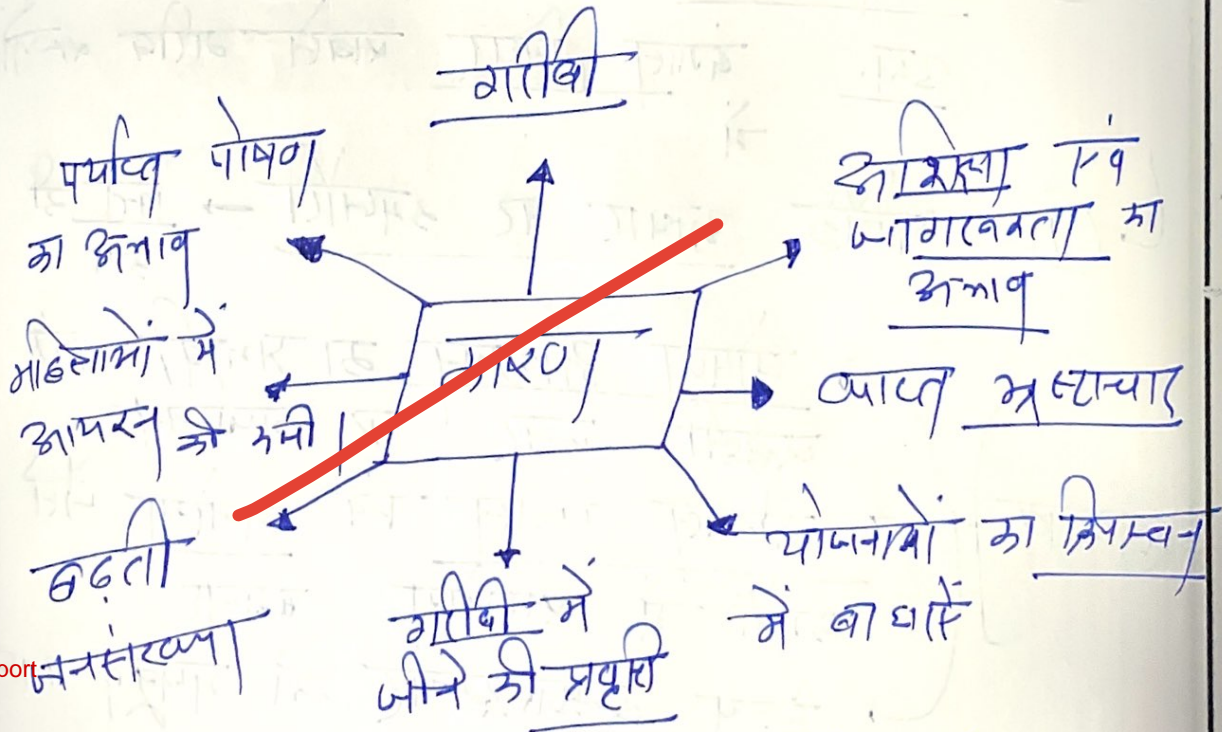 गरीबी
पर्याप्त पोषण
का अभाव
अशिक्षा एवं
जागरूकता का
अभाव
महिलाओं में
आयरन की कमी।
कारण
व्याप्त भ्रष्टाचार
बढ़ती
जनसंख्या
गरीबी में
जीने की प्रवृत्ति
योजनाओं का क्रियान्वन
में बाधाएँ
port